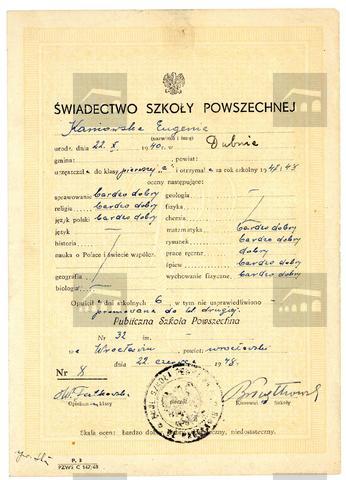 ŚWIADECTWO SZKOŁY POWSZECHNEJ
Kaniowska Eugenia
(nazwisko i imię)
urodz. dnia 22. X. 1940 r. w Dubnie
gmina: powiat:
uczęszczał a do klasy pierwszej "c" i otrzymał a za rok szkolny 1947/48
oceny następujące:
sprawowanie bardzo dobry geologia
religia bardzo dobry fizyka
język polski bardzo dobry chemia
język matematyka bardzo dobry
historia rysunek bardzo dobry
nauka o Polsce i świecie współcz. prace ręczne dobry
śpiew bardzo dobry
geografia wychowanie fizyczne bardzo dobry
biologia
Opuścił a dni szkolnych 6, w tym nie usprawiedliwiono
promowana do kl drugiej.
Publiczna Szkoła Powszechna
Nr 32 im.
w e Wrocławiu powiat: wrocławski
dnia 22 czerwca 1948.
Nr 8
Opiekun klasy
Kierownik Szkoły
pieczęć
Skala ocen: bardzo dobry, dobry, dostateczny, niedostateczny.
P. 3
PZWS C 147/48